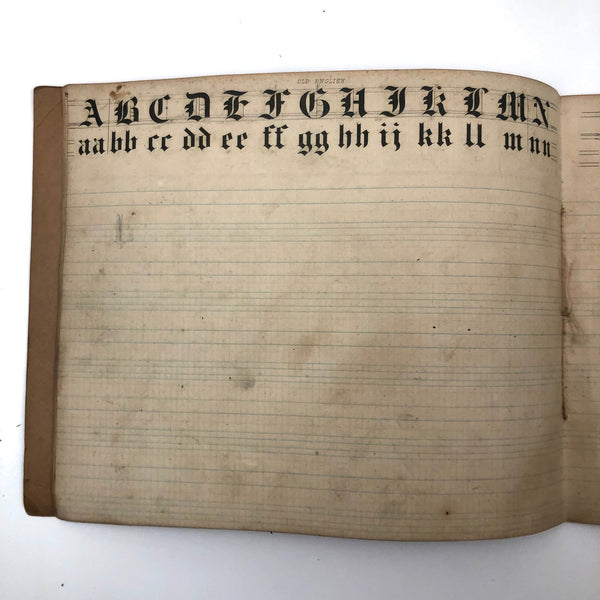 OLD ENGLISH
A B C D E F G H I K L M N
aa bb cc dd ee ff gg hh ij kk ll m nn